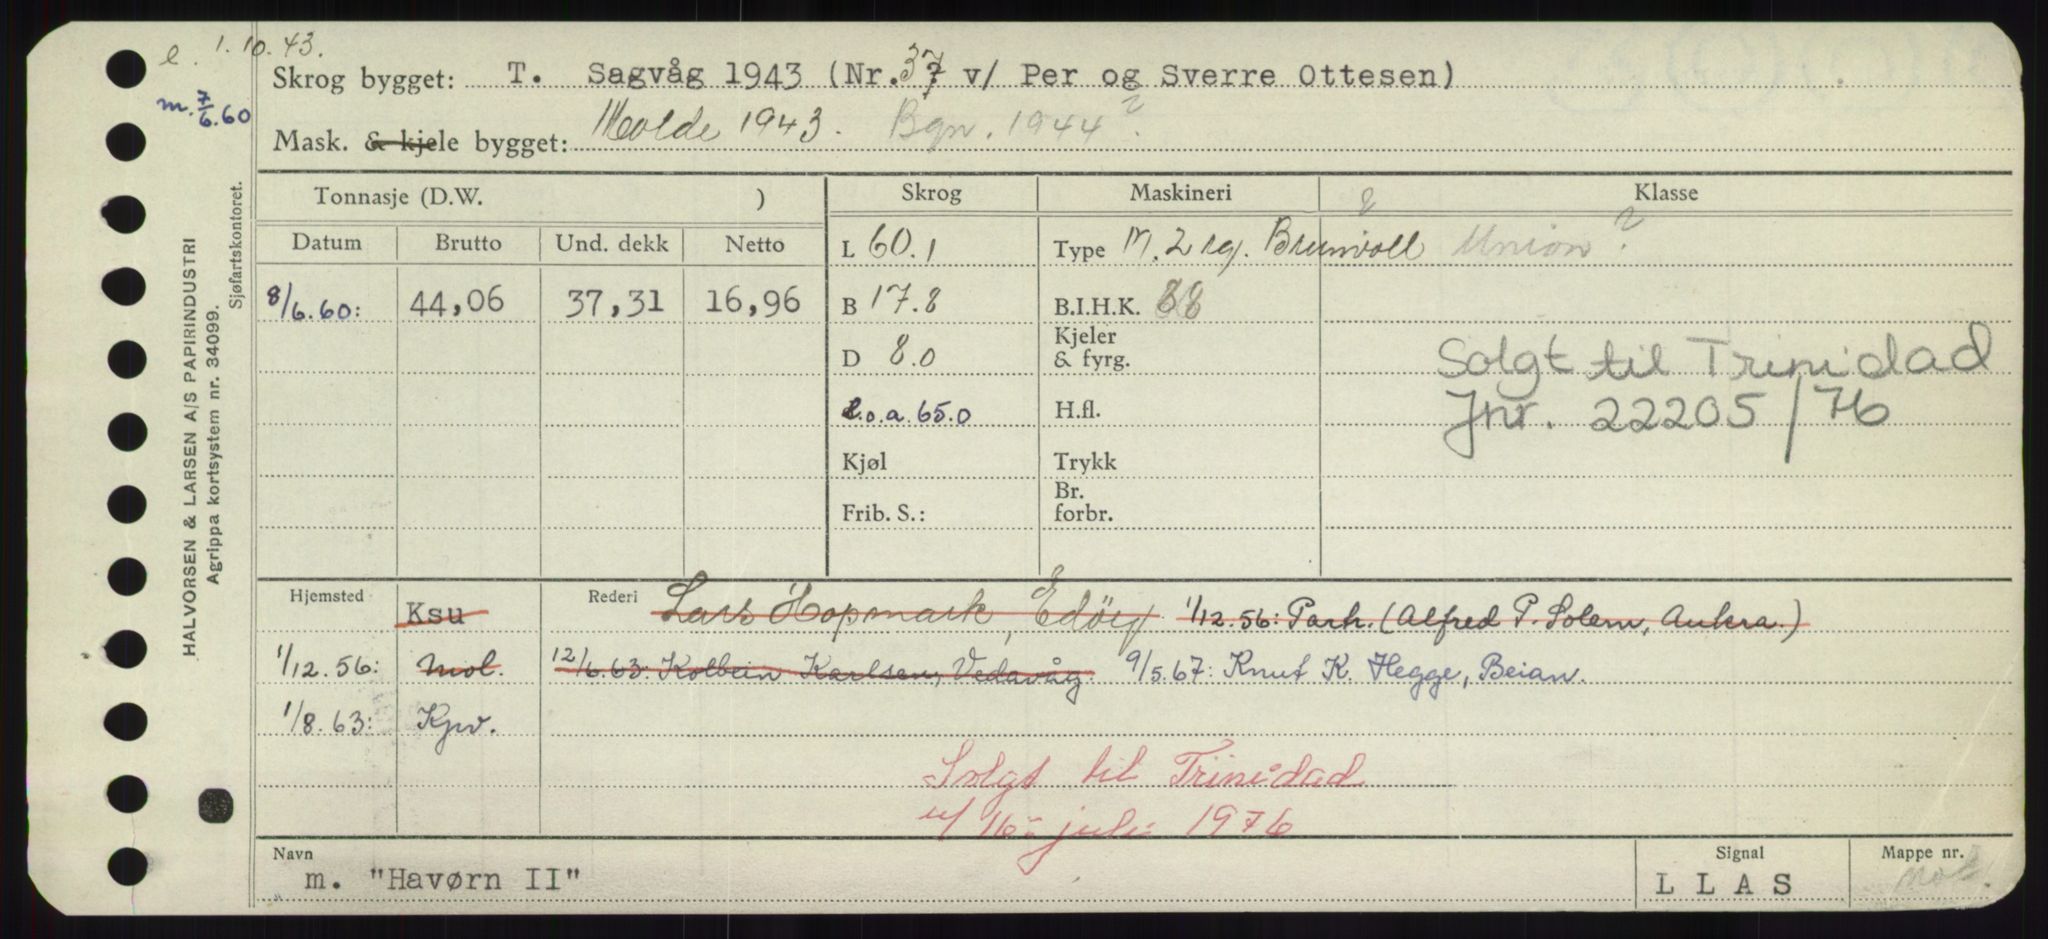 e. 1.10.43.
Skrog bygget: T. Sagvåg 1943 (Nr. 37 v/ Per og Sverre Ottesen)
m. 7/6.60
Mask. & kjele bygget: Molde 1943. Bgn. 1944 ?
Tonnasje (D.W. ) Skrog Maskineri Klasse
Datum Brutto Und. dekk Netto L 60.1 Type M. 2 sy. Brunvoll Union ?
8/6.60: 44,06 37,31 16,96 B 17.8 B.I.H.K. 88
D 8.0 Kjeler & fyrg. Solgt til Trinidad
L.o.a. 65.0 H.fl. Jnr. 22205/76
Kjøl Trykk
Frib. S.: Br. forbr.
Hjemsted Ksu Rederi Lars Hopmark, Edöy 1/12.56: Parh. (Alfred P. Solem, Aukra.)
1/12.56: Mol. 12/6.63: Kolbein Karlsen, Vedavåg. 9/5.67: Knut K. Hegge, Beian.
1/8.63: Kpv.
Solgt til Trinidad
u/ 16 juli 1976
Navn Signal Mappe nr.
m. "Havørn II" L L A S Mol.
HALVORSEN & LARSEN A/S PAPIRINDUSTRI
Agrippa kortsystem nr. 34099.
Sjøfartskontoret.